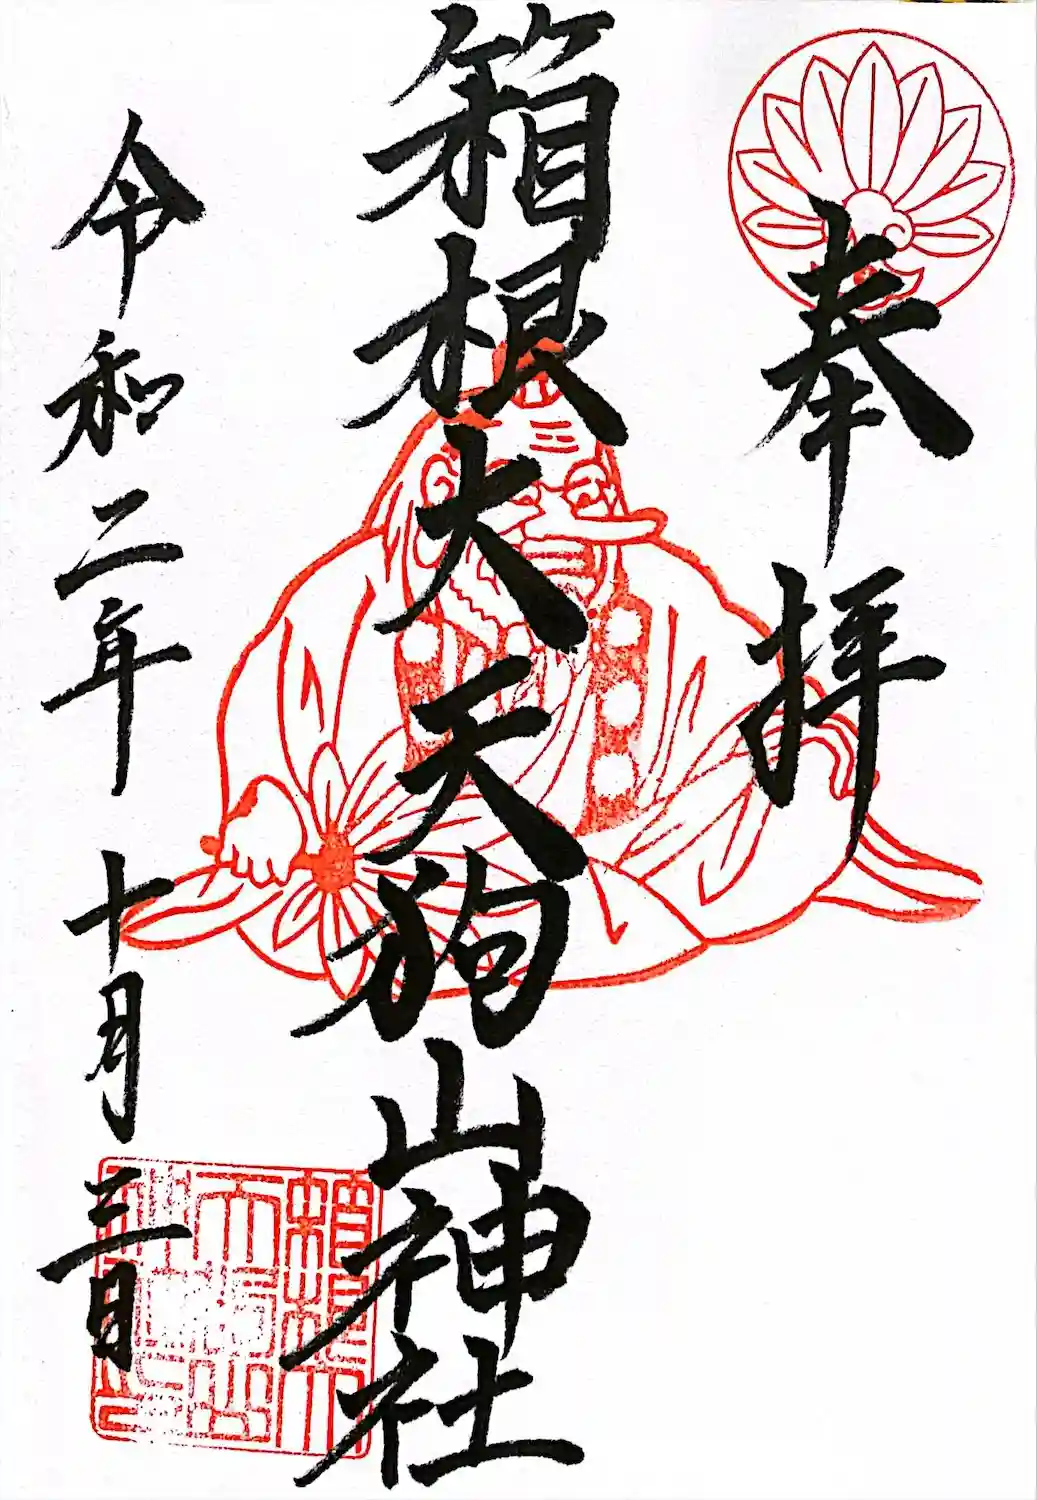 奉拝
箱根大天狗山神社
令和二年十月三日